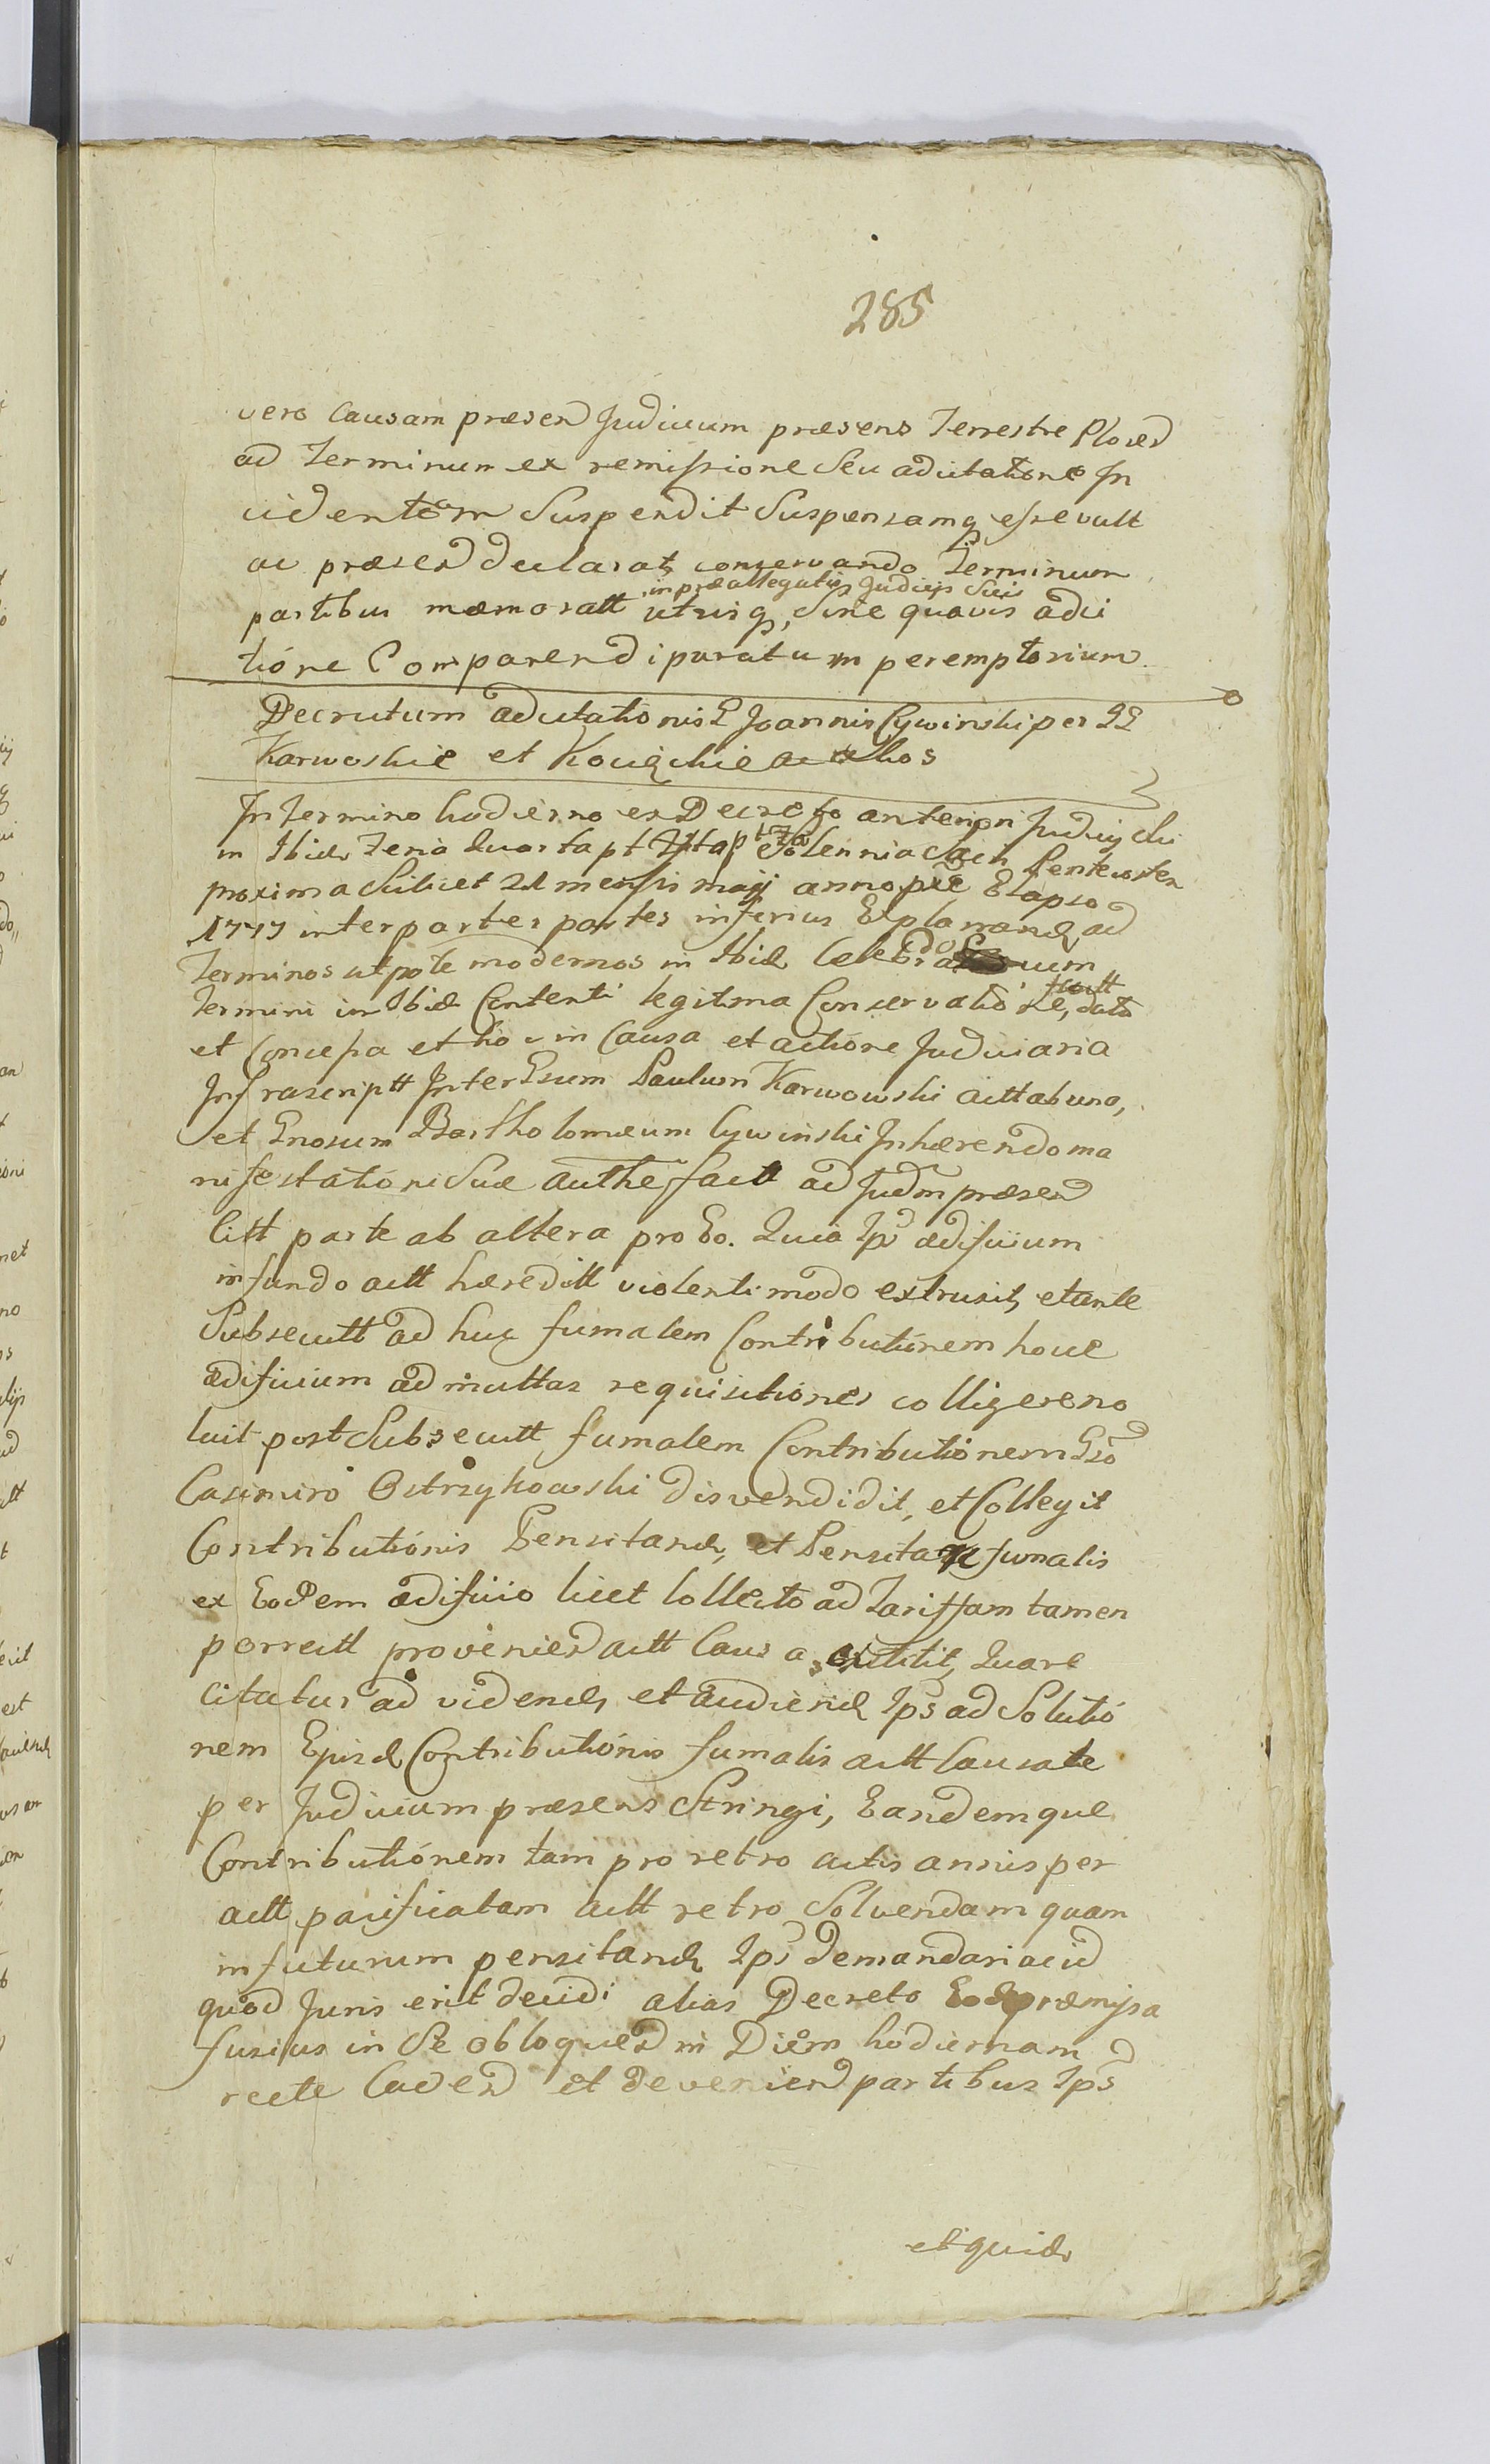 285
vero Causam præsen Judicium præsens Terrestre
ad Terminum ex remissione Seu adcitatione In
cidentem Suspendit Suspensamq esse vult
ac præsen declarat, conservando Terminum
in præallegatis Judicijs Suis
partibus mæmoratt utrisq, Sine quavis adci
tióne Comparendi paratum peremptorium
Decrutum adcitationis G Joannis Cywinski per GG
Karwoskie et
In termino hodierno ex Decreto anteriori Judicij
in Ibid Feria Quarta pt Solennia Sacr Pentecosten
proxima Scilicet 21 mensis maji anno Elapso
1777 inter partes partes inferius Explanand, ad
Terminos utpote modernos in Ibid
Termini in Ibid Contenti legitima Conservatió
et Concessa et hoc in Causa et actióne Judiciaria
Infrascriptt Inter Gsum Paulum Karwowski actt ab una,
et Gnosum Bartholomæum Cywinski Inhærendo ma
nifestatióni Suæ authe factt ad Judm præsen
Citt parte ab altera pro Eo. Quia Ips ædificium
in fundo actt hæreditt violenti modo extruxit, et ante
Subsecutt ad huc fumalem Contributiónem hocce
ædificium ad multas requisitiónes colligere no
luit post Subsecutt fumalem Contributiónem Gso
Casimiro Ostrzykowski disvendidit, et Collegit
Contributiónis Pensitand, et Pensitatæ fumalis
ex Eodem ædificio licet collecto ad Tariffam tamen
porrectt provenien actt Caus a extitit, Quare
citatus ad vidend, et audiend Ips ad Solutió
nem Ejusd Contributiónis fumalis actt causate
per Judicium præsens Stringi, Eandemque
Contributiónem tam pro retro actis annis per
actt pacificatam actt retro Solvendam quam
in futurum pensitand Ips demandari ac id
quod Juris erit decidi alias Decreto Eod præmissa
fusius in Se obloquen in Diem hodiernam
recte Caden et devenien partibus Ips
et quid